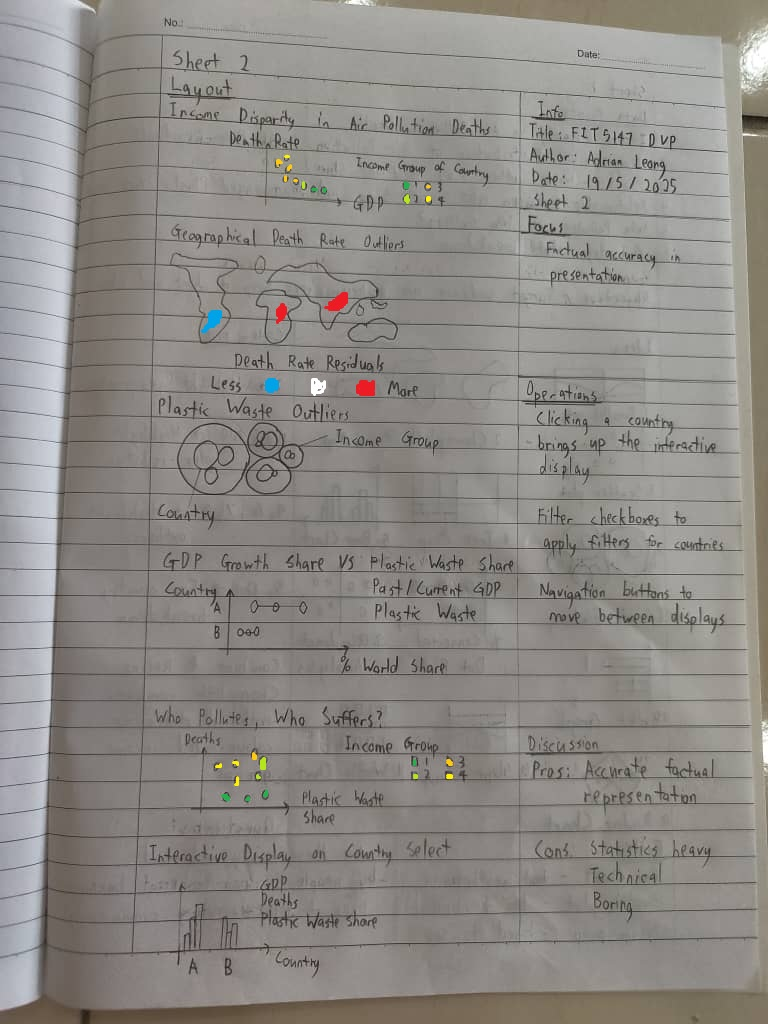 No.:
Date:
Sheet 2
Layout
Income Disparity in Air Pollution Deaths
Death Rate
Income Group of Country
1 3
2 4
GDP
Geographical Death Rate Outliers
Death Rate Residuals
Less More
Plastic Waste Outliers
Income Group
Country
GDP Growth Share VS Plastic Waste Share
Country
Past/Current GDP
Plastic Waste
A
B
% World Share
Who Pollutes, Who Suffers?
Deaths
Income Group
1 3
2 4
Plastic Waste
Share
Interactive Display on Country Select
GDP
Deaths
Plastic Waste Share
A B
Country
Info
Title: FIT5147 DVP
Author: Adrian Leong
Date: 19/5/2025
Sheet 2
Focus
Factual accuracy in
presentation
Operations
Clicking a country
brings up the interactive
display
Filter checkboxes to
apply filters for countries
Navigation buttons to
move between displays
Discussion
Pros: Accurate factual
representation
Cons. Statistics heavy
Technical
Boring